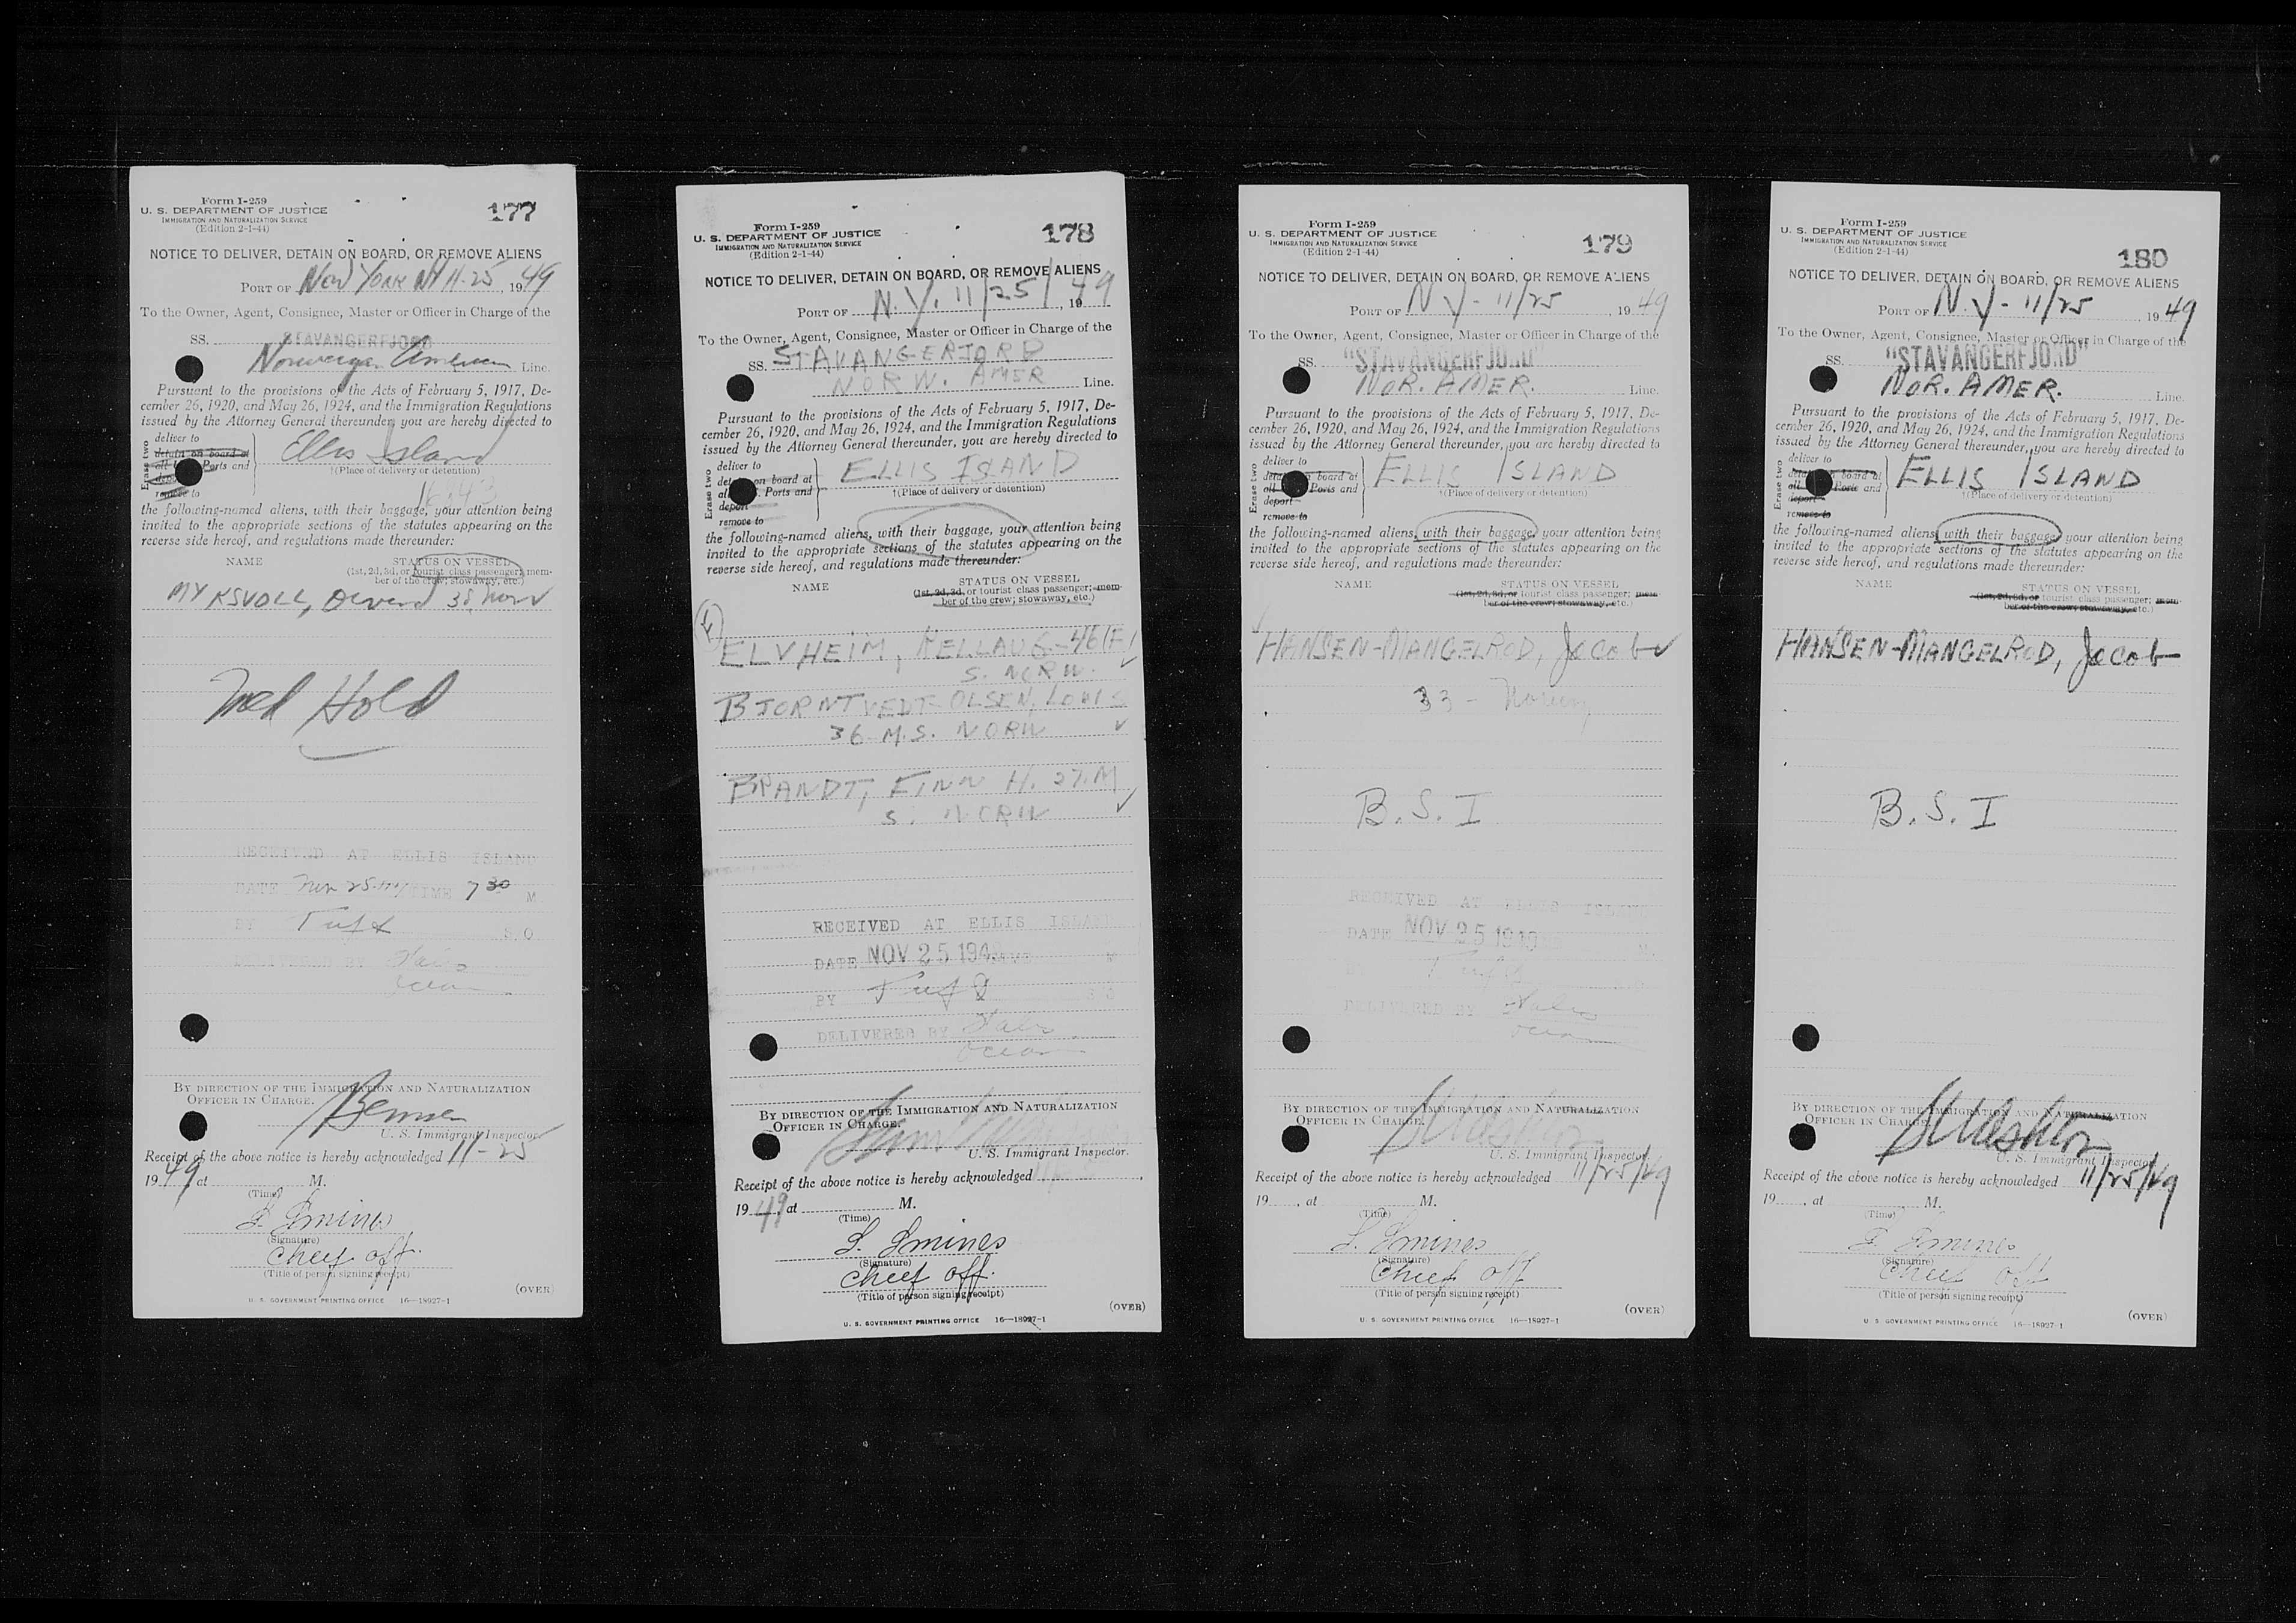 Form I-259
U. S. DEPARTMENT OF JUSTICE
IMMIGRATION AND NATURALIZATION SERVICE
(Edition 2-1-44)
177
NOTICE TO DELIVER, DETAIN ON BOARD, OR REMOVE ALIENS
PORT OF New York NY 11-25, 1949
To the Owner, Agent, Consignee, Master or Officer in Charge of the
SS. STAVANGERFJORD
Norwegian American Line.
Pursuant to the provisions of the Acts of February 5, 1917, De-
cember 26, 1920, and May 26, 1924, and the Immigration Regulations
issued by the Attorney General thereunder, you are hereby directed to
Erase two
deliver to
detain on board at
all Ports and
remove to
Ellis Island
†(Place of delivery or detention)
the following-named aliens, with their baggage, your attention being
invited to the appropriate sections of the statutes appearing on the
reverse side hereof, and regulations made thereunder:
NAME
STATUS ON VESSEL
(1st, 2d, 3d, or tourist class passenger; mem-
ber of the crew; stowaway, etc.)
MYKSVOLL, 38 Norw
Med Hold
RECEIVED AT ELLIS ISLAND
DATE Nov 25 TIME 7 30 M
BY S.O
DELIVERED BY
BY DIRECTION OF THE IMMIGRATION AND NATURALIZATION
OFFICER IN CHARGE.
U. S. Immigrant Inspector
Receipt of the above notice is hereby acknowledged 11-25
1949 at M.
(Time)
Smines
(Signature)
Chief off.
(Title of person signing receipt)
(OVER)
U. S. GOVERNMENT PRINTING OFFICE 16-18927-1
Form I-259
U. S. DEPARTMENT OF JUSTICE
IMMIGRATION AND NATURALIZATION SERVICE
(Edition 2-1-44)
178
NOTICE TO DELIVER, DETAIN ON BOARD, OR REMOVE ALIENS
PORT OF N.Y. 11/25/49, 19
To the Owner, Agent, Consignee, Master or Officer in Charge of the
SS. STAVANGERFJORD
NORW. AMER Line.
Pursuant to the provisions of the Acts of February 5, 1917, De-
cember 26, 1920, and May 26, 1924, and the Immigration Regulations
issued by the Attorney General thereunder, you are hereby directed to
Erase two
deliver to
on board at
Ports and
deport
remove to
ELLIS ISLAND
†(Place of delivery or detention)
the following-named aliens, with their baggage, your attention being
invited to the appropriate sections of the statutes appearing on the
reverse side hereof, and regulations made thereunder:
NAME
STATUS ON VESSEL
(1st, 2d, 3d, or tourist class passenger; mem-
ber of the crew; stowaway, etc.)
ELVHEIM, KELLAUG-46(F)
S. NORW.
BJORNTVEDT-OLSEN, LOUIS
36 M.S. NORW
BRANDT, FINN H. 27.M
S. NORW
RECEIVED AT ELLIS ISLAND
DATE NOV 25 1949 M
BY
DELIVERED BY
BY DIRECTION OF THE IMMIGRATION AND NATURALIZATION
OFFICER IN CHARGE.
U. S. Immigrant Inspector.
Receipt of the above notice is hereby acknowledged
1949, at M.
(Time)
S. Smines
(Signature)
Chief off.
(Title of person signing receipt)
(OVER)
U. S. GOVERNMENT PRINTING OFFICE 16—18927-1
Form I-259
U. S. DEPARTMENT OF JUSTICE
IMMIGRATION AND NATURALIZATION SERVICE
(Edition 2-1-44)
179
NOTICE TO DELIVER, DETAIN ON BOARD, OR REMOVE ALIENS
PORT OF N Y - 11/25, 1949
To the Owner, Agent, Consignee, Master or Officer in Charge of the
SS. "STAVANGERFJORD"
NOR. AMER. Line.
Pursuant to the provisions of the Acts of February 5, 1917, De-
cember 26, 1920, and May 26, 1924, and the Immigration Regulations
issued by the Attorney General thereunder, you are hereby directed to
Erase two
deliver to
board at
all Ports and
deport
remove to
ELLIS ISLAND
†(Place of delivery or detention)
the following-named aliens, with their baggage, your attention being
invited to the appropriate sections of the statutes appearing on the
reverse side hereof, and regulations made thereunder:
NAME
STATUS ON VESSEL
(1st, 2d, 3d, or tourist class passenger; mem-
ber of the crew; stowaway, etc.)
HANSEN-MANGELROD, Jacob
33 -
B.S.I
RECEIVED AT ELLIS ISLAND
DATE NOV 25 1949 M.
BY
DELIVERED BY
BY DIRECTION OF THE IMMIGRATION AND NATURALIZATION
OFFICER IN CHARGE.
U. S. Immigrant Inspector
Receipt of the above notice is hereby acknowledged 11/25/49
19, at M.
(Time)
S. Smines
(Signature)
Chief off
(Title of person signing receipt)
(OVER)
U. S. GOVERNMENT PRINTING OFFICE 16—18927-1
Form I-259
U. S. DEPARTMENT OF JUSTICE
IMMIGRATION AND NATURALIZATION SERVICE
(Edition 2-1-44)
180
NOTICE TO DELIVER, DETAIN ON BOARD, OR REMOVE ALIENS
PORT OF N.Y - 11/25, 1949
To the Owner, Agent, Consignee, Master or Officer in Charge of the
SS. "STAVANGERFJORD"
NOR. AMER. Line.
Pursuant to the provisions of the Acts of February 5, 1917, De-
cember 26, 1920, and May 26, 1924, and the Immigration Regulations
issued by the Attorney General thereunder, you are hereby directed to
Erase two
deliver to
board at
all Ports and
deport
remove to
ELLIS ISLAND
†(Place of delivery or detention)
the following-named aliens, with their baggage, your attention being
invited to the appropriate sections of the statutes appearing on the
reverse side hereof, and regulations made thereunder:
NAME
STATUS ON VESSEL
(1st, 2d, 3d, or tourist class passenger; mem-
ber of the crew; stowaway, etc.)
HANSEN-MANGELROD, Jacob
B.S.I
BY DIRECTION OF THE IMMIGRATION AND NATURALIZATION
OFFICER IN CHARGE.
U. S. Immigrant Inspector
Receipt of the above notice is hereby acknowledged 11/25/49
19, at M.
(Time)
Smines
(Signature)
Chief off
(Title of person signing receipt)
(OVER)
U. S. GOVERNMENT PRINTING OFFICE 16—18927-1